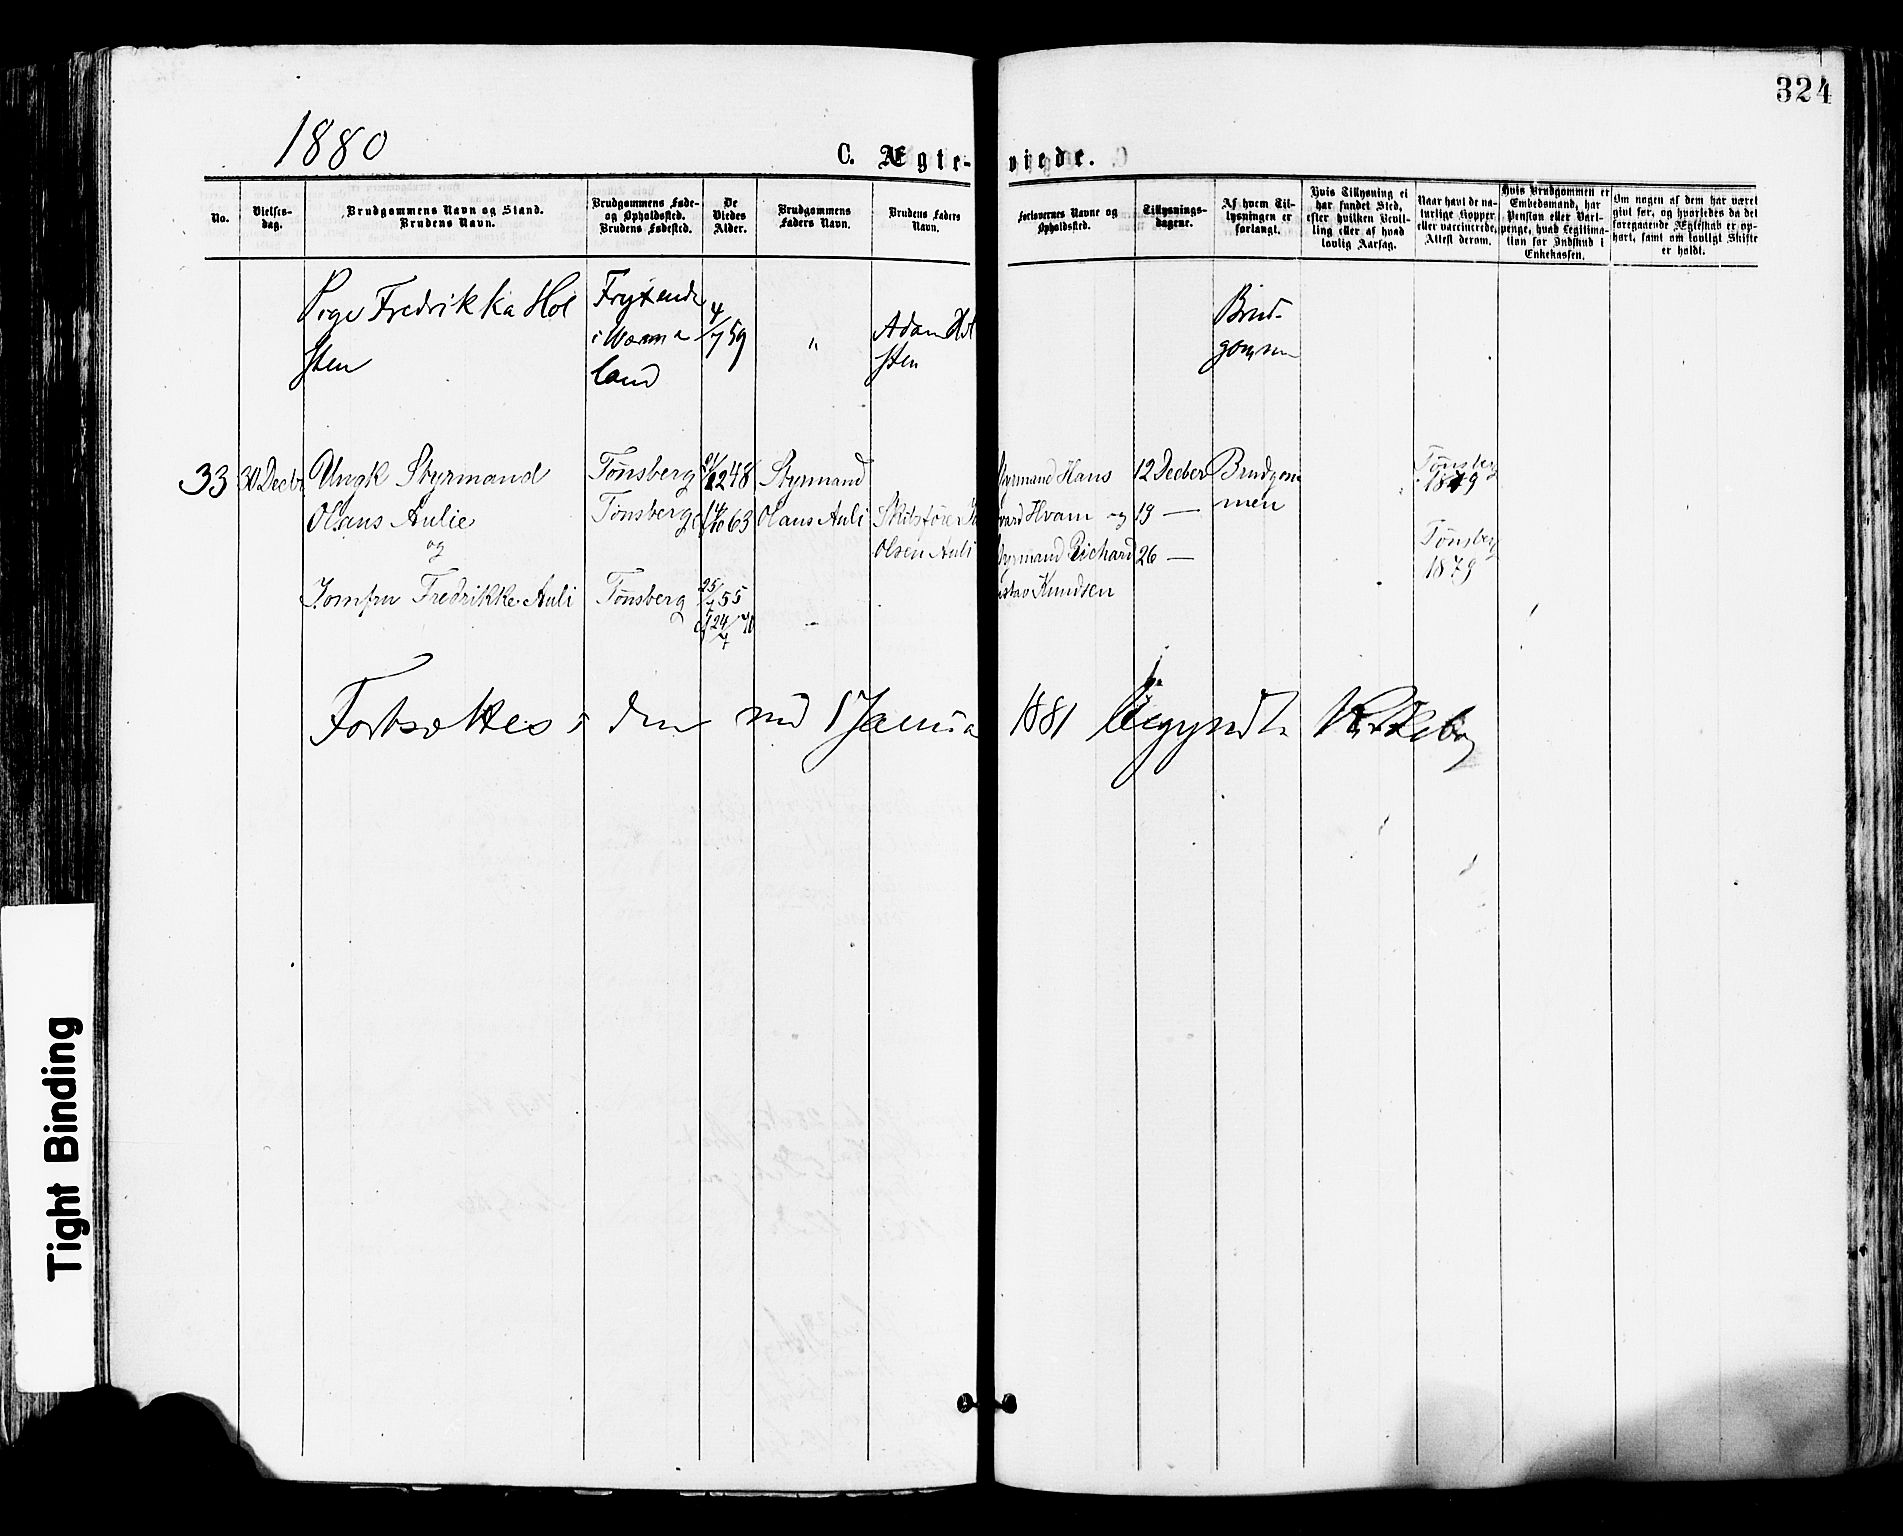 324
1880
C. Ægte-viede.
No.
Vielses-
dag.
Brudgommens Navn og Stand.
Brudens Navn.
Brudgommens Føde-
og Opholdssted.
Brudens Fødested.
De
Viedes
Alder.
Brudgommens
Faders Navn.
Brudens Faders
Navn.
Forlovernes Navne og
Opholdssted.
Tillysnings-
dagene.
Af hvem Til-
lysningen er
forlangt.
Hvis Tillysning ei
har fundet Sted,
efter hvilken Bevil-
ling eller af hvad
lovlig Aarsag.
Naar havt de na-
turlige Kopper
eller vaccinerede,
Attest derom.
Hvis Brudgommen er
Embedsmand, har
Pension eller Vart-
penge, hvad Legitima-
tion for Indskud i
Enkekassen.
Om nogen af dem har været
gift før, og hvorledes da det
foregaaende Ægteskab er op-
hørt, samt om lovligt Skifte
er holdt.
Pige Fredrikka Hol
sten
i Werm
land
4/7 59
"
Adam Hol
sten
Brud-
gommen
33
30 Decbr
Ungk Styrmand
Olaus Aulie
og
Jomfru Fredrikke Auli
Tønsberg
Tønsberg
Tønsberg
48
63
25/4 55
Styrmand
Olaus Auli
Olsen Auli
Styrmand Hans
Hvam og
Styrmand Richard
Gustav Knudsen
12 Decber
19 —
26 —
Brudgom
men
Tønsberg
1879
Tønsberg
1879
Fortsættes i den med 1 Janua 1881 begyndte Kirkebog
Tight Binding